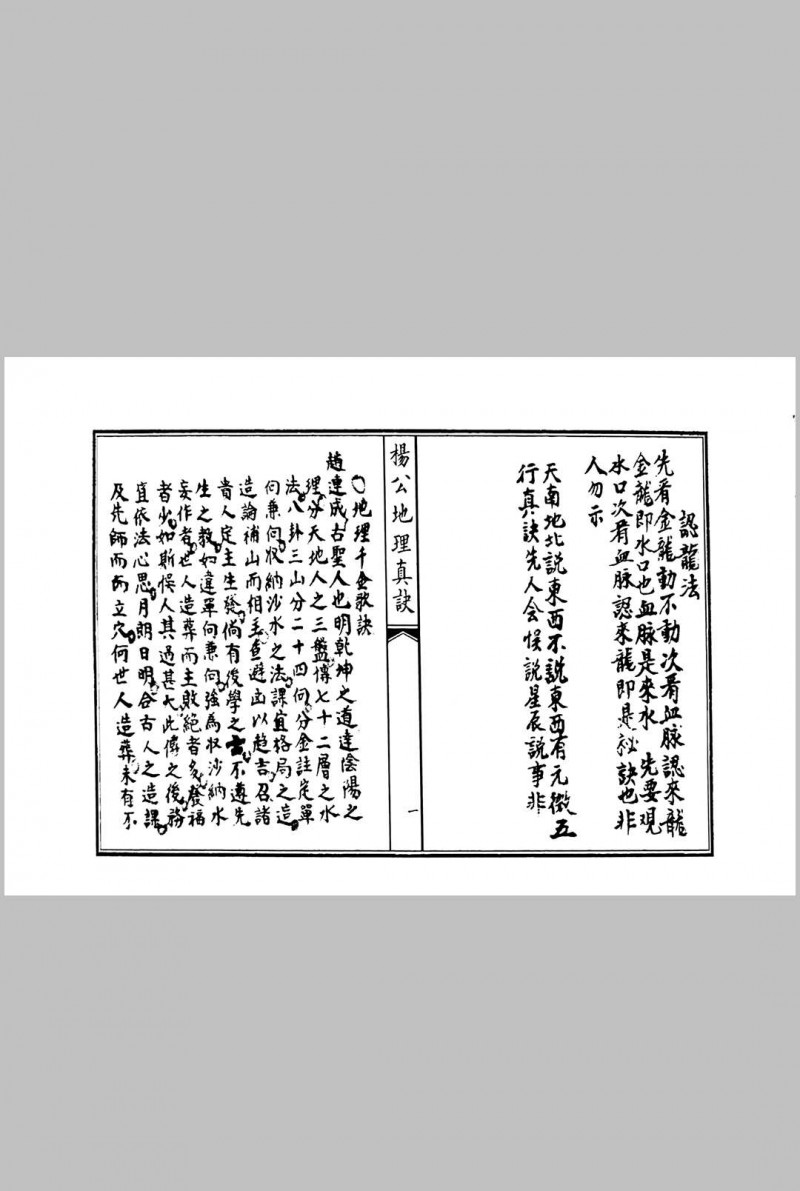 認龍法
先看金龍動不動次看血脉認來龍
金龍即水口也血脉是來水 先要观
水口次看血脉認來龍即是秘訣也非
人勿示
天南地北說東西不說東西有元微五
行真訣先人会悮說星辰說事非
楊公地理真訣
一
○地理千金歌訣
趙連成古聖人也明乾坤之道達陰陽之
理分天地人之三盤傳七十二層之水
法八卦三山分二十四向分金註定單
向兼向収納沙水之法課宜格局之造
造論補山而相主查避凶以趋吉召諸
貴人定主生發倘有後學之士不遵先
生之教如違單向兼向強為収沙納水
妄作者世人造葬而主敗絕者多發福
者少如斯悮人其過甚大此傳之後務
宜依法心思月朗日明合古人之造課
及先師而立穴何世人造葬未有不